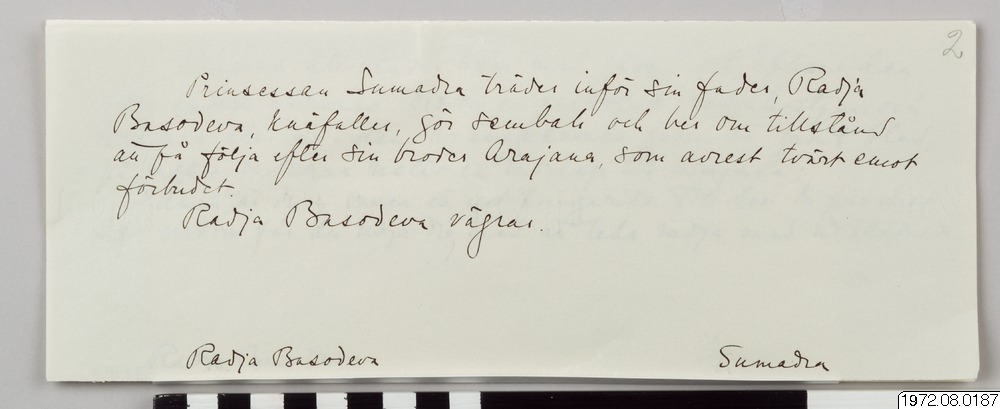 2
Prinsessan Sumadra träder inför sin fader, Radja
Basodeva, knäfaller, gör sembah och ber om tillstånd
att få följa efter sin broder Arajana, som avrest tvärt emot
förbudet.
Radja Basodeva vägrar.
Radja Basodeva Sumadra
1972.08.0187